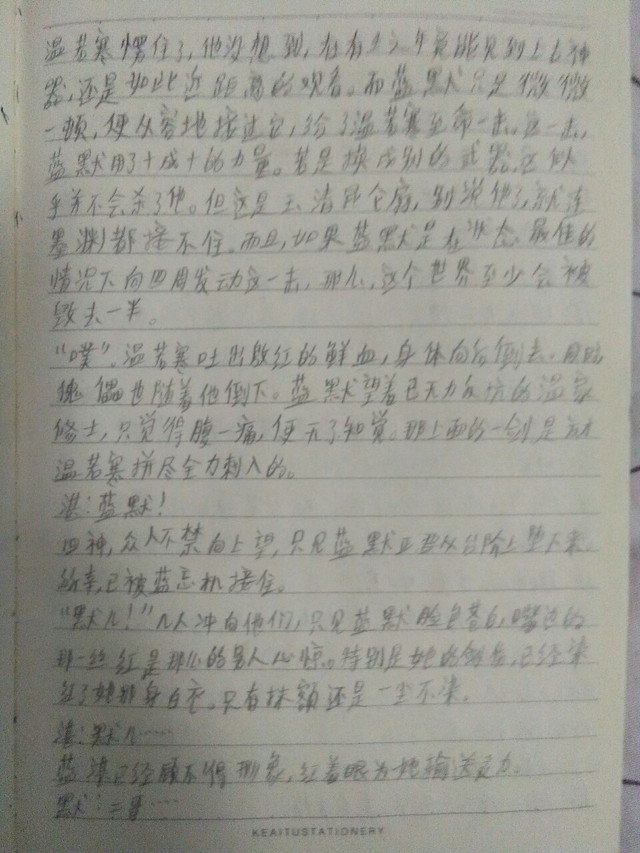 温若寒愣住了,他没想到,在有生之年竟能见到上古神
器,还是如此近距离的观看。而蓝默只是微微
一顿,便从容地接过它,给了温若寒至命一击。这一击,
蓝默用了十成十的力量。若是换成别的武器,这似
乎并不会杀了他。但这是玉清昆仑扇,别说他了,就连
墨渊都接不住。而且,如果蓝默是在状态最佳的
情况下向四周发动这一击,那么,这个世界至少会被
毁去一半。
"噗"。温若寒吐出殷红的鲜血,身体向后倒去。同时
傀儡也随着他倒下。蓝默望着已无力反抗的温家
修士,只觉得腹一痛,便无了知觉。那上面的一剑是方才
温若寒拼尽全力刺入的。
湛:蓝默!
回神,众人不禁向上望,只见蓝默正要从台阶上坠下来。
所幸,已被蓝忘机接住。
"默儿!"几人冲向他们,只见蓝默脸色苍白,嘴边的
那一丝红是那么的另人心惊。特别是她的伤,已经染
红了她那身白衣。只有抹额还是一尘不染。
湛:默儿……
蓝湛已经顾不得形象,红着眼为她输送灵力。
默:二哥……
KEAITUSTATIONERY